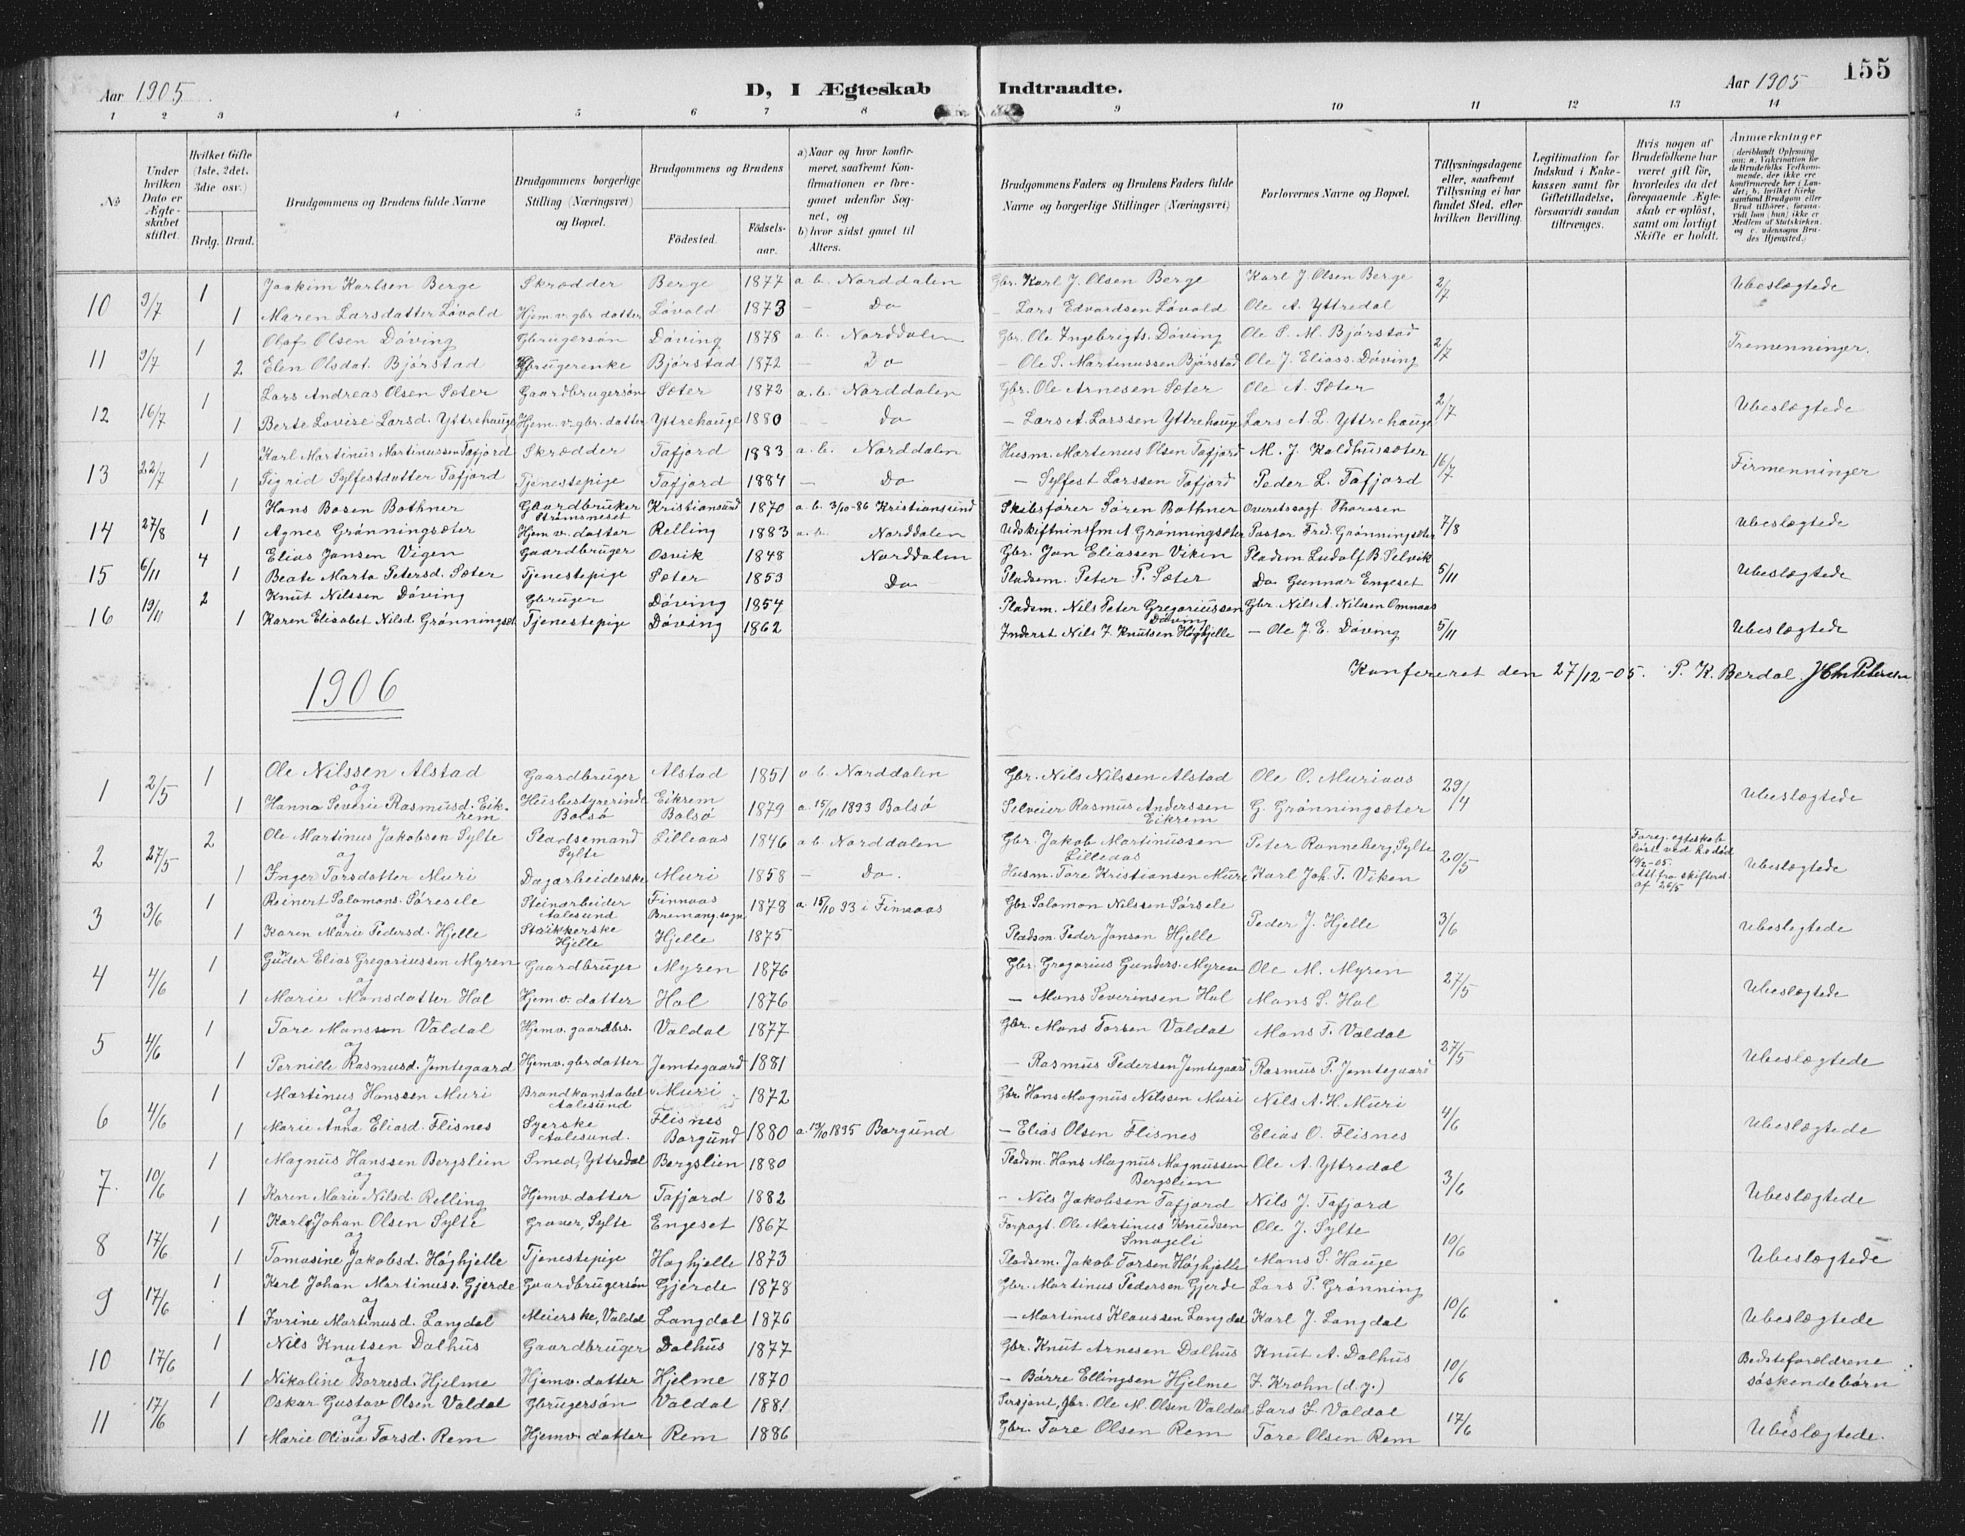 155
Aar 1905 D, I Ægteskab Indtraadte. Aar 1905
1 2 3 4 5 6 7 8 9 10 11 12 13 14
No
Under hvilken Dato er Ægteskabet stiftet.
Hvilket Gifte (1ste, 2det, 3die osv.)
Brdg. Brud.
Brudgommens og Brudens fulde Navne
Brudgommens borgerlige Stilling (Næringsvei) og Bopæl.
Brudgommens og Brudens
Fødested. Fødselsaar.
a) Naar og hvor konfirmeret, saafremt Konfirmationen er foregaaet udenfor Sognet, og
b) hvor sidst gaaet til Alters.
Brudgommens Faders og Brudens Faders fulde Navne og borgerlige Stillinger (Næringsvei)
Forlovernes Navne og Bopæl.
Tillysningsdagene eller, saafremt Tillysning ei har fundet Sted, efter hvilken Bevilling.
Legitimation for Indskud i Enkekassen samt for Giftetilladelse, forsaavidt saadan tiltrænges.
Hvis nogen af Brudefolkene har været gift før, hvorledes da det foregaaende Ægteskab er opløst, samt om lovligt Skifte er holdt.
Anmærkninger
10 9/7 1 Joakim Karlsen Berge Skrædder Berge 1877 a b Norddalen Gbr. Karl J. Olsen Berge Karl J. Olsen Berge 2/7 Ubeslægtede
1 Maren Larsdatter Løvold Hjem.v. gbr. datter Løvold 1873 — Do — Lars Edvardsen Løvold Ole A. Yttredal
11 9/7 1 Olaf Olsen Döving Gbrugersøn Döving 1878 a. b. Norddalen Gbr. Ole Ingebrigts. Döving Ole S. M. Bjørstad 2/7 Tremenninger.
2 Elen Olsdat. Bjørstad Gbrugerenke Bjørstad 1872 — Do — Ole S. Martinussen Bjørstad Ole J. Eliass. Döving
12 16/7 1 Lars Andreas Olsen Sæter Gaardbrugersøn Sæter 1872 a. b. Norddalen Gbr. Ole Arnesen Sæter Ole A. Sæter 2/7 Ubeslægtede
1 Berte Lovise Larsd. Yttrehauge Hjem.v. gbr. datter Yttrehauge 1880 — Do — Lars A. Larssen Yttrehauge Lars A. L. Yttrehauge
13 22/7 1 Karl Martinus Martinussen Tafjord Skrædder Tafjord 1883 a. b. Norddalen Husm. Martenus Olsen Tafjord M. J. Kaldhussæter 16/7 Firmenninger
1 Sigrid Sylfestdatter Tafjord Tjenestepige Tafjord 1884 — Do — Sylfest Larssen Tafjord Peder L. Tafjord
14 27/8 1 Hans Bosen Bothner Gaardbruker Strømsneset Kristiansund 1870 a. b. 3/10-86 Kristianssund Skibsfører Sören Bothner Overetssagf. Thoresen 7/8 Ubeslægtede
1 Agnes Grønningsæter Hjem v. datter Relling 1883 a. b. Norddalen Udskiftninsfm A Grønningsæter Pastor Fred. Grønningsæter
15 6/11 4 Elias Jansen Vigen Gaardbruger Osvik 1848 Norddalen Gbr. Jon Eliassen Viken Pladsm. Ludolf B. Selvik 5/11 Ubeslægtede
1 Beate Marta Petersd. Sæter Tjenestepige Sæter 1853 Do Pladsm. Peter P. Sæter Do Gunnar Engeset
16 19/11 2 Knut Nilssen Döving Gbruger Döving 1854 Pladsm. Nils Peter Gregoriussen Döving Gbr. Nils A. Nilsen Omnaas 5/11 Ubeslægtede
1 Karen Elisabet Nilsd. Grønningsæt. Tjenestepige Döving 1862 Inderst Nils J. Knutsen Høghjelle — Ole J. E. Döving
Konfereret den 27/12-05. P. K. Berdal
1906
1 2/5 1 Ole Nilssen Alstad Gaardbruger Alstad 1851 a b. Norddalen Gbr. Nils Nilssen Alstad Ole O. Muriaas 29/4 Ubeslægtede
og
1 Hanna Severie Rasmusd. Eikrem Husbestyrerinde Bolsø Eikrem Bolsø 1879 a. 15/10 1893 Bolsø Selveier Rasmus Anderssen Eikrem G. Grønningsæter
2 27/5 2 Ole Martinus Jakobsen Sylte Pladsemand Sylte Lilleaas 1846 a b Norddalen Gbr. Jakob Martinussen Lilleaas Peter Ronneberg, Sylte 20/5 Ubeslægtede
og
1 Inger Torsdatter Muri Dagarbeiderske Muri 1858 — Do. Husm. Tore Kristiansen Muri Karl Joh. T. Viken
3 3/6 1 Reinert Salomons. Søresele Steinarbeider Aalesund Finnaas Bremang. sogn 1878 a. 15/10 93 i Finnaas Gbr. Salomon Nilssen Sørsele Peder J. Hjelle 3/6 Ubeslegtede
og
1 Karen Marie Pedersd. Hjelle Hjelle Hjelle 1875 Pladsm. Peder Jonson Hjelle
4 4/6 1 Gunder Elias Gregoriussen Myren Gaardbruger Myren 1876 Gbr. Gregorius Gunders. Myren Ole M. Myren 27/5 Ubeslægtede
og
1 Marie Monsdatter Hol Hjem v. datter Hol 1876 — Mons Severinsen Hol Mons S. Hol
5 4/6 1 Tore Monssen Valdal Hjemv. gaardbr. Valdal 1877 Gbr. Mons Torsen Valdal Mons T. Valdal 27/5 Ubeslægtede
og
1 Pernille Rasmusd. Jemtegaard Hjemv. gbr datter Jemtegaard 1881 — Rasmus Pedersen Jemtegaard Rasmus P. Jemtegaard
6 4/6 1 Martinus Hanssen Muri Brandkonstabel Aalesund Muri 1872 Gbr. Hans Magnus Nilssen Muri Nils A. H. Muri 4/6 Ubeslægtede
og
1 Marie Anna Eliasd. Flisnes Syerske Aalesund. Flisnes Borgund 1880 1895 Borgund — Elias Olsen Flisnes Elias O. Flisnes
7 10/6 1 Magnus Hanssen Bergslien Smed, Yttredal Bergslien 1880 Pladsm. Hans Magnus Magnussen Bergslien Ole A. Yttredal 3/6 Ubeslægtede
og
1 Karen Marie Nilsd. Relling Hjemv. datter Tafjord 1882 — Nils Jakobsen Tafjord Nils J. Tafjord
8 17/6 1 Karl Johan Olsen Sylte Graver, Sylte Engeset 1867 Forpagt. Ole Martinus Knudsen Smogeli Ole J. Sylte 10/6 Ubeslægtede
og
1 Tomasine Jakobsd. Høghjelle Tjenestepige Høghjelle 1873 Pladsm. Jakob Torsen Høghjelle Mons S. Hauge
9 17/6 1 Karl Johan Martinuss. Gjerde Gaardbrugersøn Gjerde 1878 Gbr. Martinus Pedersen Gjerde Lars P. Grønning 10/6 Ubeslægtede
og
1 Ivrine Martinusd. Langdal Meierske, Valdal Langdal 1876 — Martinus Klaussen Langdal Karl J. Langdal
10 17/6 1 Nils Knutsen Dalhus Gaardbruger Dalhus 1877 Gbr. Knut Arnesen Dalhus Knut A. Dalhus 10/6 Bedsteforældrene søskendebørn
og
1 Nikoline Børresd. Hjelme Hjemv. datter Hjelme 1870 — Børre Ellingsen Hjelme J. Krohn (d. y.)
11 17/6 1 Oskar Gustav Olsen Valdal Gbrugersøn Valdal 1881 Sersjant, Gbr. Ole M. Olsen Valdal Lars L. Valdal 17/6 Ubeslægtede.
og
1 Marie Olivia Torsd. Rem Hjemv. datter Rem 1886 Gbr. Tore Olsen Rem Tore Olsen Rem